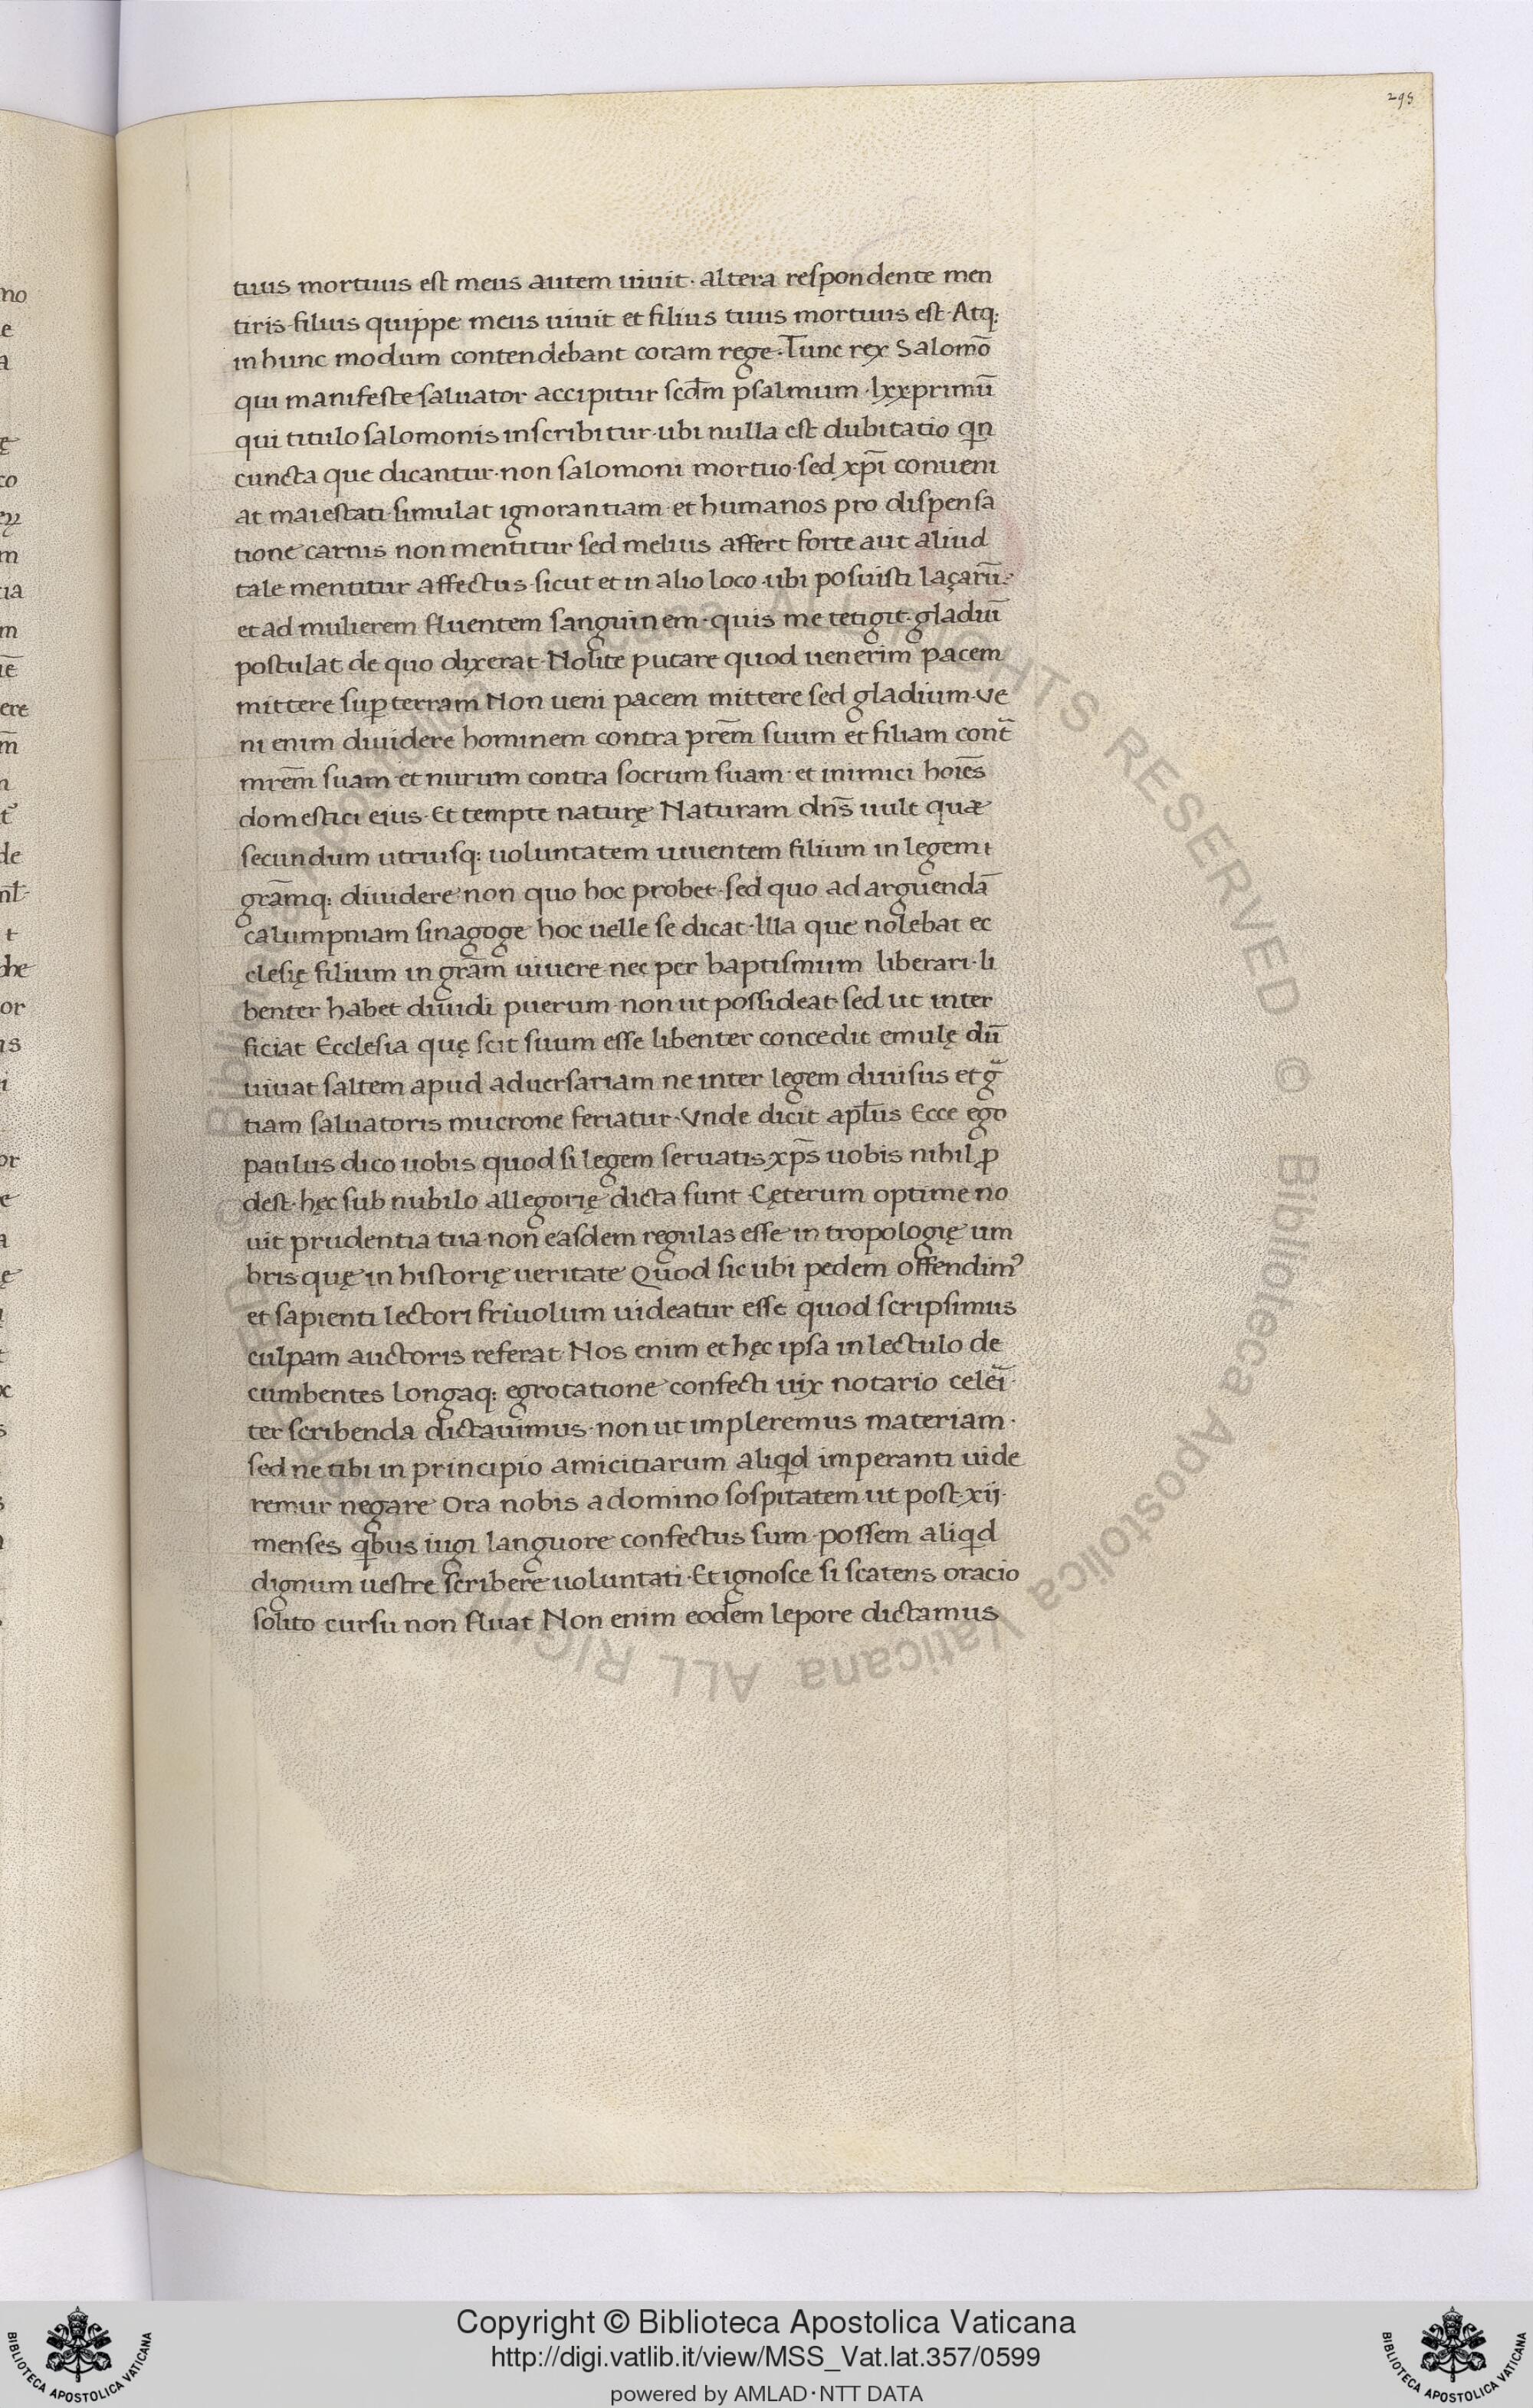 295
tuus mortuus est meus autem uiuit · altera respondente men
tiris · filius quippe meus uiuit et filius tuus mortuus est · Atq:
in hunc modum contendebant coram rege · Tunc rex Salomō
qui manifeste saluator accipitur scd̄m psalmum · lxxprimū
qui titulo salomonis inscribitur · ubi nulla est dubitatio qin
cuncta que dicantur · non salomoni mortuo · sed xp̄i conueni
at maiestati · simulat ignorantiam · et humanos pro dispensa
tione carnis non mentitur sed melius affert forte aut aliud
tale mentitur affectus · sicut et in alio loco · ubi posuisti laçarū ·
et ad mulierem fluentem sanguinem · quis me tetigit · gladiū
postulat de quo dixerat · Nolite putare quod uenerim pacem
mittere suꝑ terram Non ueni pacem mittere sed gladium · ve
ni enim diuidere hominem contra prēm suum et filiam cont̄
mrēm suam · et nurum contra socrum suam · et inimici hoiēs
domestici eius · Et tempte naturę Naturam dn̄s uult quæ
secundum utriusq: uoluntatem uiuentem filium in legem i
grāmq: diuidere · non quo hoc probet · sed quo ad arguendā
calumpniam sinagoge hoc uelle se dicat · Illa que nolebat ec
clesię filium in grām uiuere · nec per baptismum liberari · li
benter habet diuidi puerum · non ut possideat · sed ut inter
ficiat Ecclesia quę scit suum esse libenter concedit emulę dū
uiuat saltem apud aduersariam ne inter legem diuisus et g̃
tiam saluatoris mucrone feriatur · Vnde dicit apl̄us Ecce ego
paulus dico uobis quod si legem seruatis · xp̄s uobis nihil ꝓ
dest · hęc sub nubilo allegorię dicta sunt · Cęterum optime no
uit prudentia tua · non easdem regulas esse in tropologię um
bris quę in historię ueritate Quod sicubi pedem offendim᾽
et sapienti lectori friuolum uideatur esse quod scripsimus
culpam auctoris referat · Nos enim et hęc ipsa in lectulo de
cumbentes longaq: egrotatione confecti uix notario celei
ter scribenda dictauimus · non ut impleremus materiam ·
sed ne tibi in principio amicitiarum aliqid imperanti uide
remur negare Ora nobis a domino sospitatem · ut post · xij ·
menses qibus iugi languore confectus sum · possem aliqid
dignum uestre scribere uoluntati · Et ignosce si scatens oracio
solito cursu non fluat Non enim eodem lepore dictamus
Copyright © Biblioteca Apostolica Vaticana
http://digi.vatlib.it/view/MSS_Vat.lat.357/0599
powered by AMLAD·NTT DATA